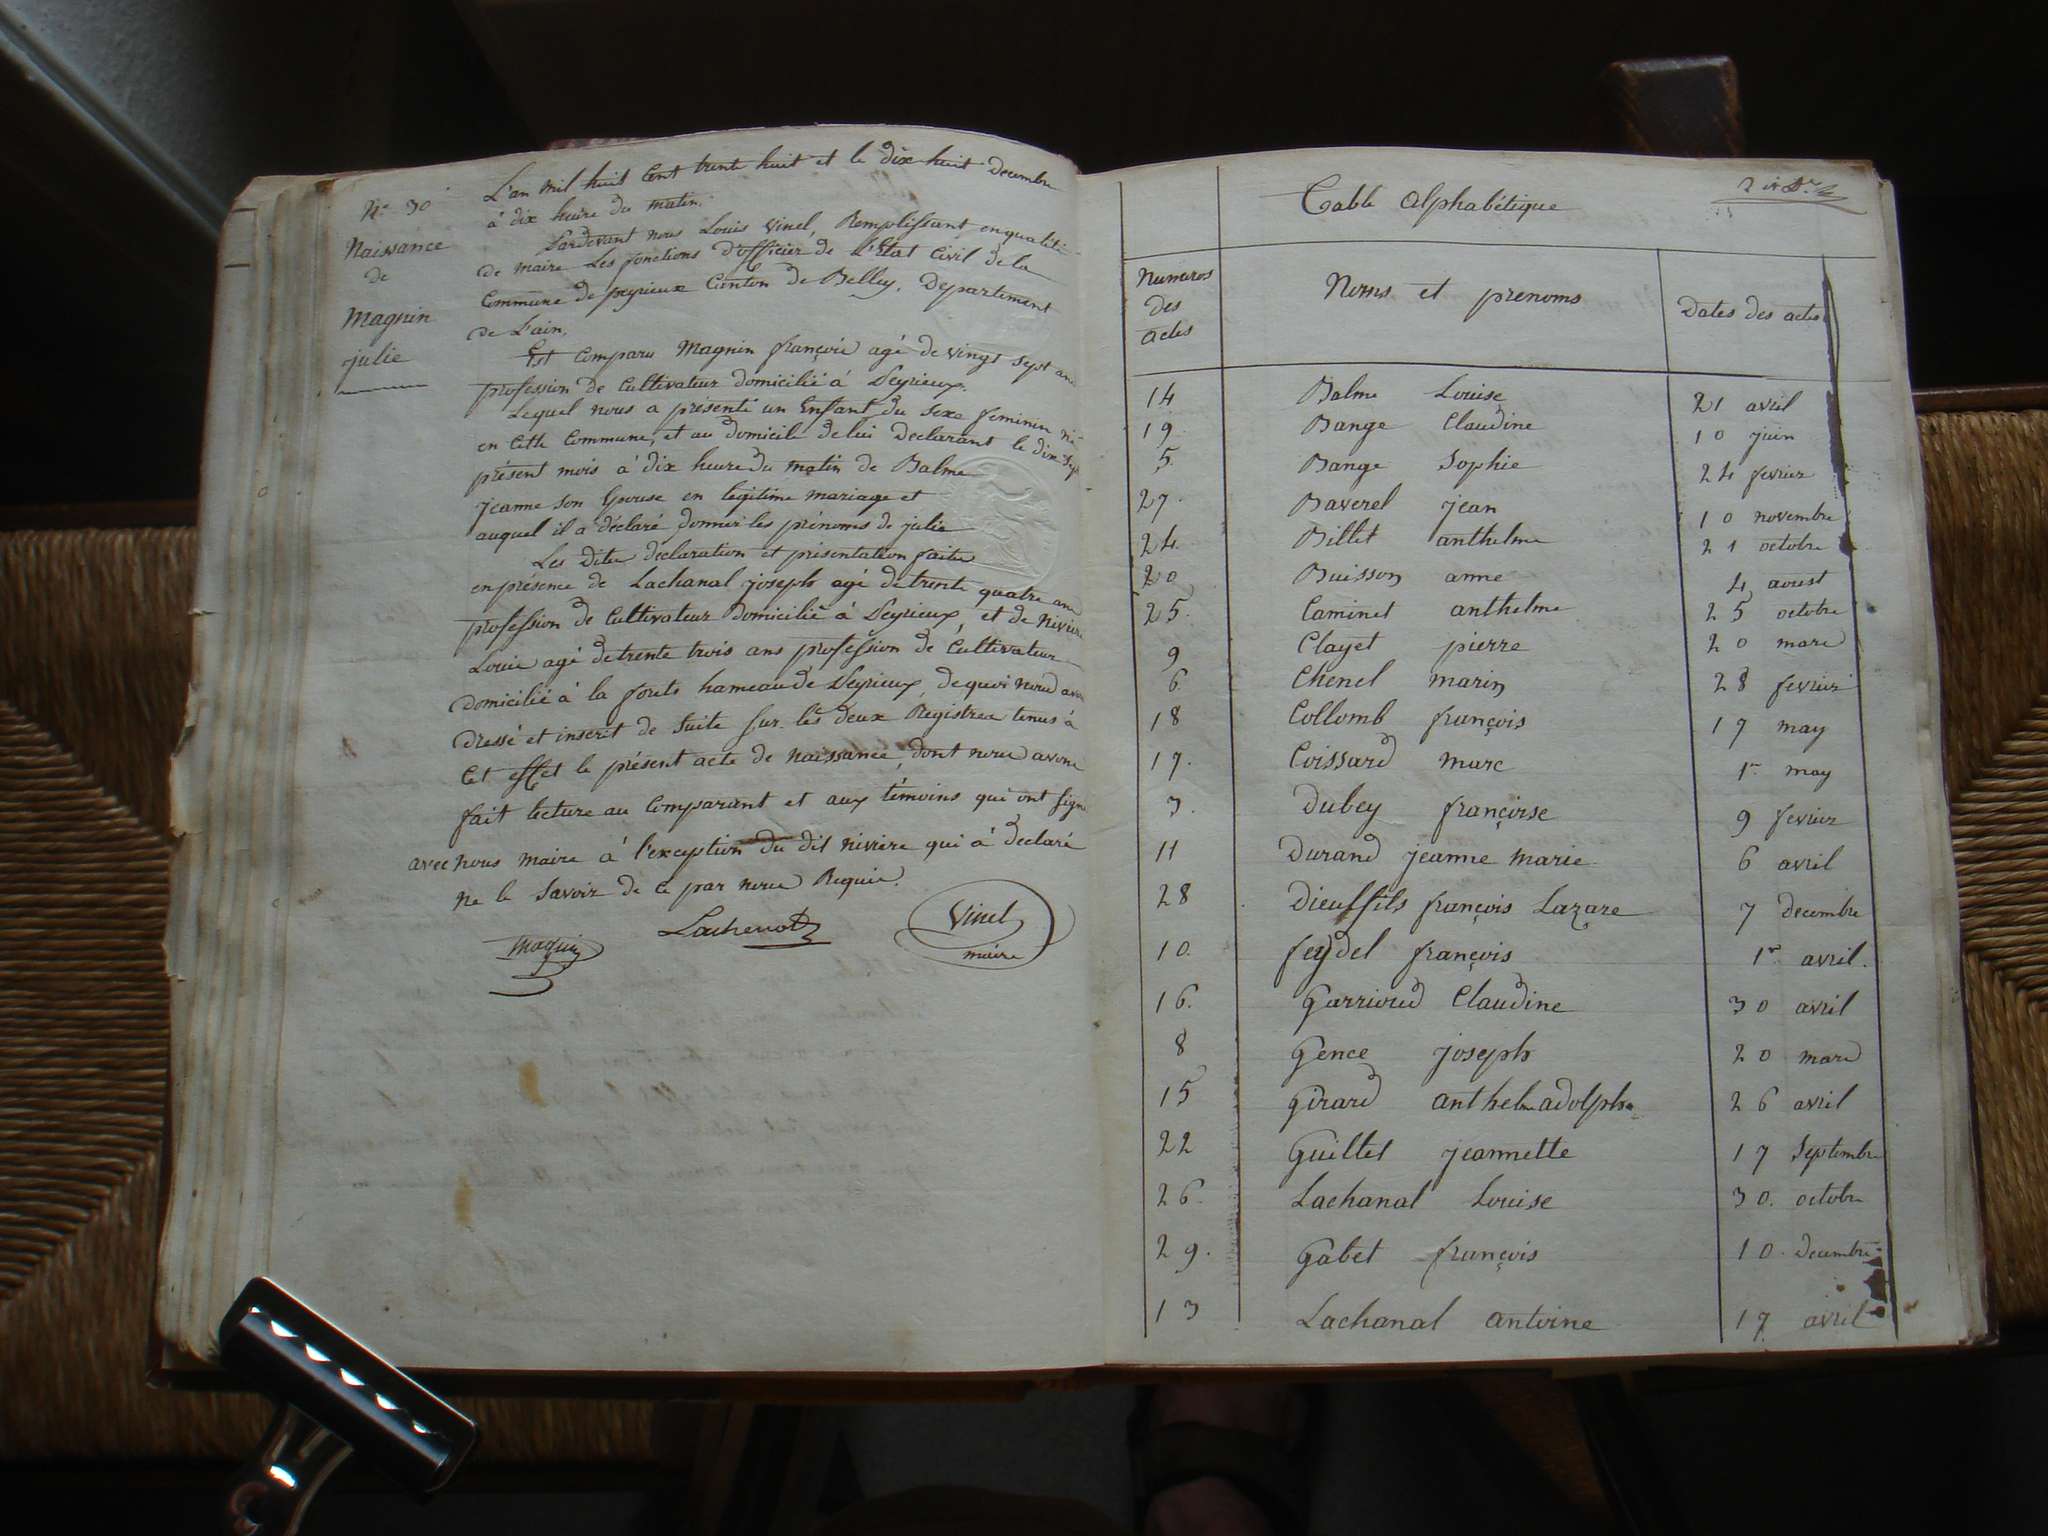 N.o 30
Naissance
de
Magnin
julie
L'an mil huit Cent trente huit et le dix huit Decembre
à dix heure du matin.
Pardevant nous Louis Vinel, Remplissant en qualité
de maire Les fonctions d'officier de L'Etat Civil de la
Commune de peyrieux Canton de Belley, Departement
de L'ain.
Est Comparu Magnin françois agé de vingt sept ans
profession de Cultivateur domicilié à Peyrieux.
Lequel nous a présenté un Enfant du sexe feminin né
en Cette Commune, et au domicile de lui Declarant le dix sept
présent mois à dix heure du matin de Balme
jeanne son Epouse en legitime mariage et
auquel il a déclaré donner les prénoms de julie
Les dite declaration et présentation faite
en présence de Lachanal joseph agé de trente quatre ans
profession de Cultivateur domicilié à Peyrieux, et de niviere
Louis agé de trente trois ans profession de Cultivateur
domicilié à la hameau de Peyrieux, de quoi nous avons
dressé et inscrit de suite sur les deux Registres tenus à
Cet effet le présent acte de naissance, dont nous avons
fait lecture au Comparant et aux témoins qui ont signé
avec nous maire à l'exception du dit niviere qui à declaré
ne le savoir de ce par nous Requis.
Magnin
Lachenal
Vinel
maire
Table alphabétique
Numéros
des
actes
Noms et prenoms
Dates des actes
14 Balme Louise 21 avril
19 Bange Claudine 10 juin
5. Bange Sophie 24 fevrier
27. Baverel jean 10 novembre
24. Billet anthelme 21 octobre
20 Buisson anne 4 aoust
25. Caminet anthelme 25 octobre
9 Clayet pierre 20 mars
6. Chenel marin 28 fevrier
18 Collomb françois 17 may
17. Coissard marc 1er may
3. Dubey françoise 9 fevrier
11 Durand jeanne marie 6 avril
28 Dieuffils françois Lazare 7 decembre
10. feydel françois 1er avril.
16. Garrioud Claudine 30 avril
8 Gence joseph 20 mars
15 Girard anthelme adolphe 26 avril
22 Guillet jeannette 17 Septembre
26. Lachanal Louise 30. octobre
29. Gabet françois 10. decembre
13 Lachanal antoine 17 avril